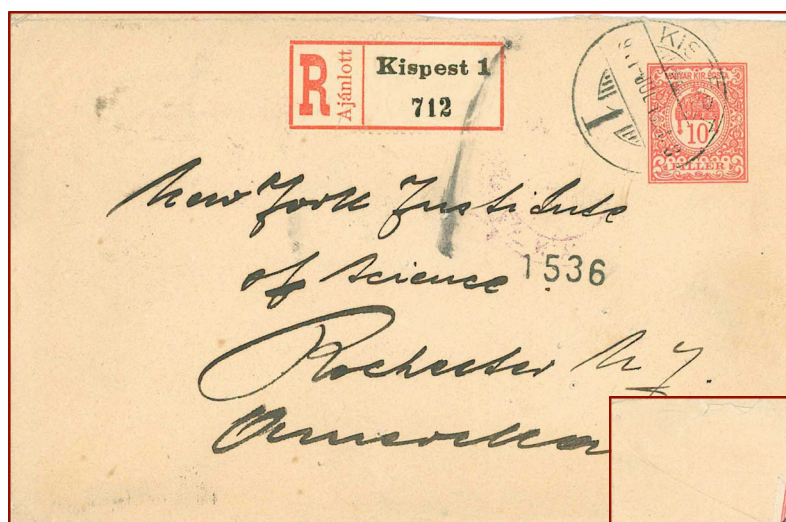 R Ajánlott Kispest 1
712
MAGYAR KIR. POSTA
10
FILLÉR
New York Institute
of science
1536
Rochester N Y.
Amerika